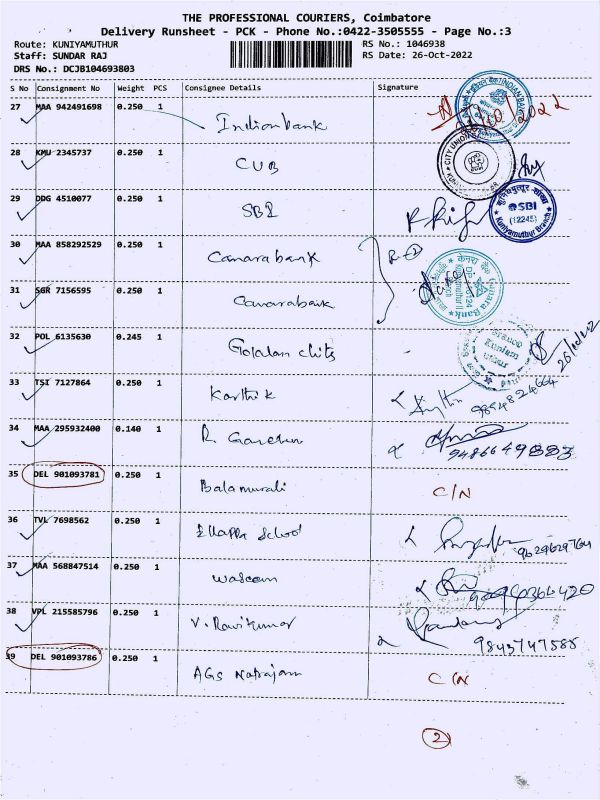 THE PROFESSIONAL COURIERS, Coimbatore
Delivery Runsheet - PCK - Phone No.:0422-3505555 - Page No.:3
Route: KUNIYAMUTHUR RS No.: 1046938
Staff: SUNDAR RAJ RS Date: 26-Oct-2022
DRS No.: DCJB104693803
S No Consignment No Weight PCS Consignee Details Signature
27 MAA 942491698 0.250 1 Indianbank
28 KMU 2345737 0.250 1 CUB
CITY UNION
29 DDG 4510077 0.250 1 SBI
SBI
(12245)
Kuniyamuthur Branch
30 MAA 858292529 0.250 1 Canarabank
Canara Bank
31 SGR 7156595 0.250 1 Canarabank
32 POL 6135630 0.245 1 chits
33 TSI 7127864 0.250 1 Karthik
9894824664
34 MAA 295932400 0.140 1 R.
35 DEL 901093781 0.250 1 Balamurali C/N
36 TVL 7698562 0.250 1 Ellappa School
9629629764
37 MAA 568847514 0.250 1
38 VPL 215585796 0.250 1 V. Ravikumar
9843747585
39 DEL 901093786 0.250 1 AGS Natrajam C/N
2